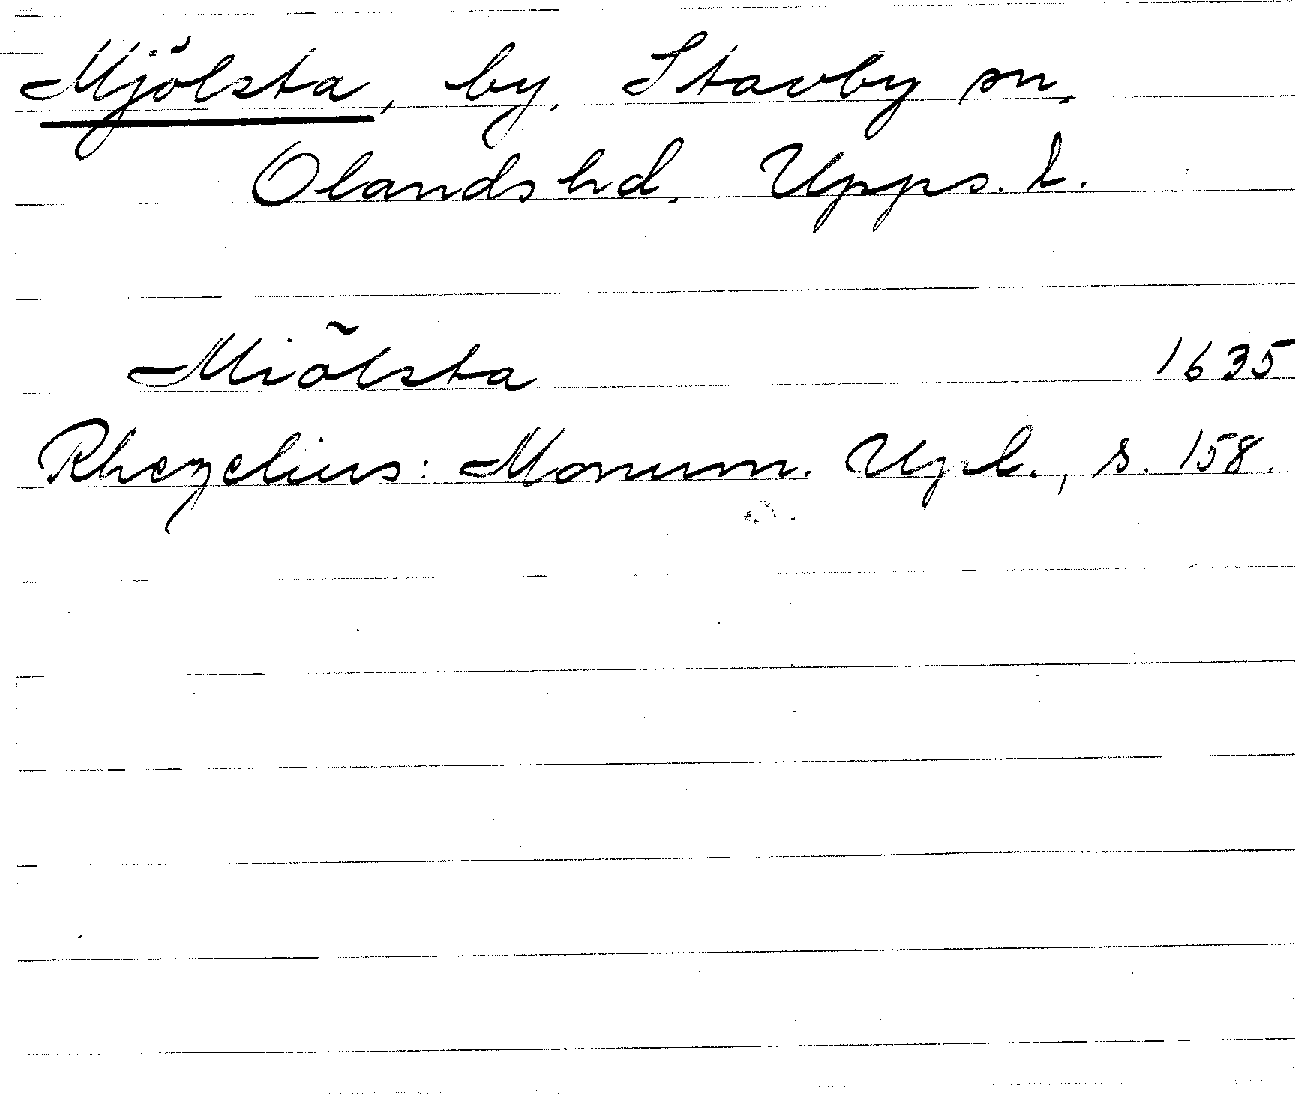 Mjölsta, by, Stavby sn.
Olandshd. Upps. l.
Miõlsta 1635
Rhezelius: Monum. Upl., s. 158.